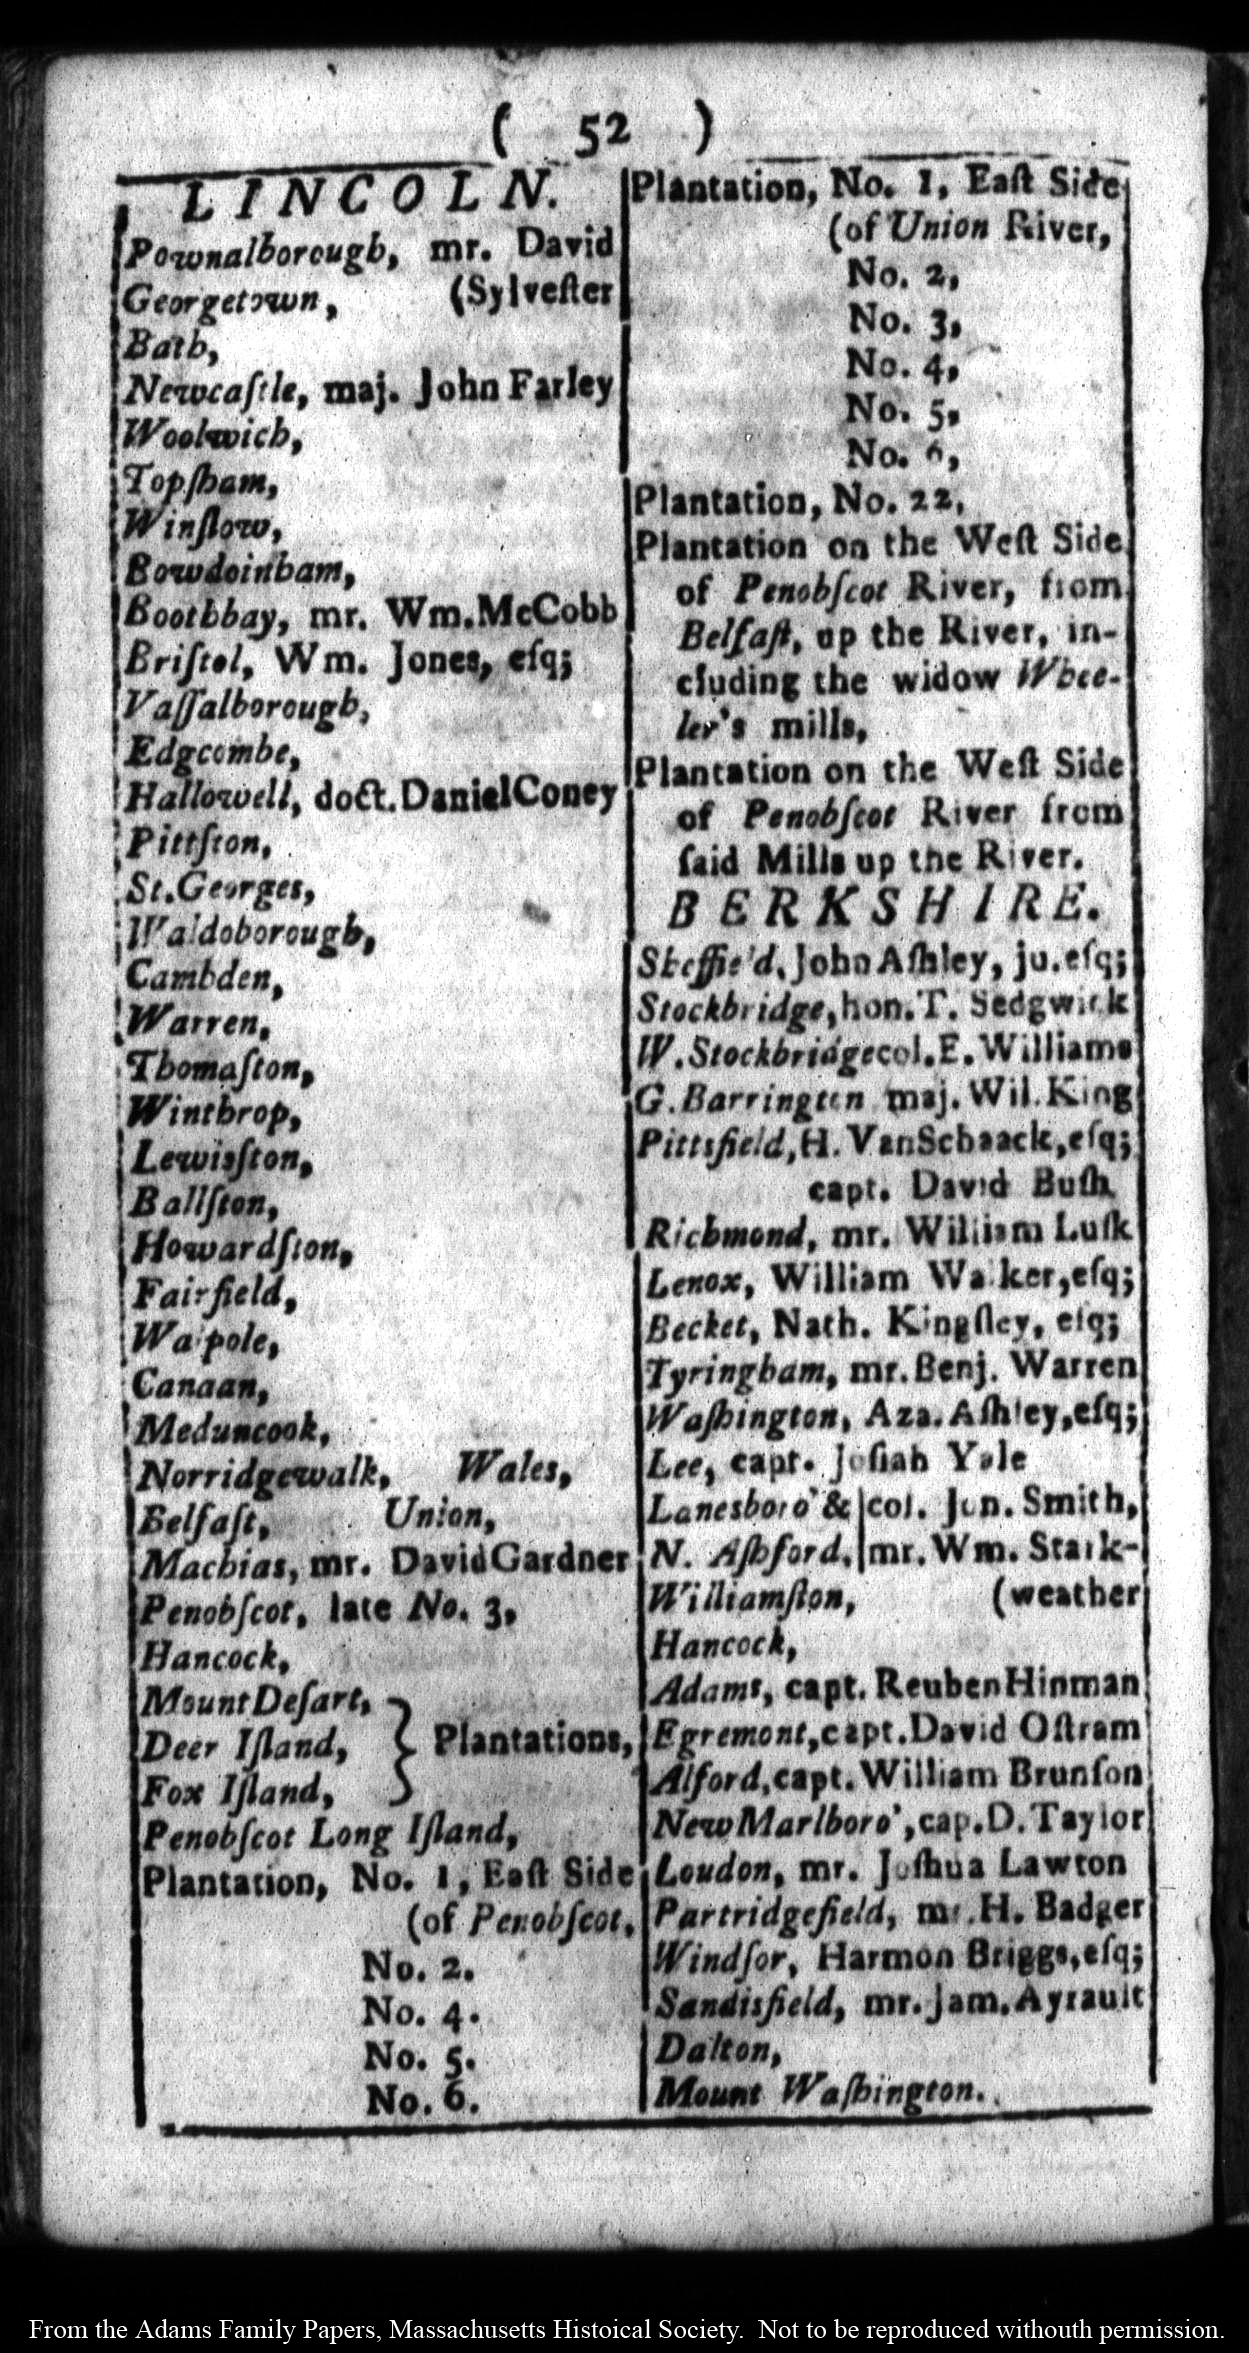 ( 52 )
LINCOLN.
Pownalborough, mr. David
Georgetown, (Sylveſter
Bath,
Newcaſtle, maj. John Farley
Woolwich,
Topſham,
Winſlow,
Bowdoinham,
Boothbay, mr. Wm. McCobb
Briſtol, Wm. Jones, eſq;
Vaſſalborough,
Edgcombe,
Hallowell, doct. Daniel Coney
Pittſton,
St. Georges,
Waldoborough,
Cambden,
Warren,
Thomaſton,
Winthrop,
Lewisſton,
Ballſton,
Howardſton,
Fairfield,
Walpole,
Canaan,
Meduncook,
Norridgewalk, Wales,
Belfaſt, Union,
Machias, mr. David Gardner
Penobſcot, late No. 3,
Hancock,
Mount Deſart,
Deer Iſland, } Plantations,
Fox Iſland,
Penobſcot Long Iſland,
Plantation, No. 1, Eaſt Side
(of Penobſcot,
No. 2.
No. 4.
No. 5.
No. 6.
Plantation, No. 1, Eaſt Side
(of Union River,
No. 2,
No. 3,
No. 4,
No. 5,
No. 6,
Plantation, No. 22,
Plantation on the Weſt Side
of Penobſcot River, from
Belfaſt, up the River, in-
cluding the widow Whee-
ler's mills,
Plantation on the Weſt Side
of Penobſcot River from
ſaid Mills up the River.
BERKSHIRE.
Sheffield, John Aſhley, ju. eſq;
Stockbridge, hon. T. Sedgwick
W. Stockbridge col. E. Williams
G. Barrington maj. Wil. King
Pittsfield, H. VanSchaack, eſq;
capt. David Buſh
Richmond, mr. William Luſk
Lenox, William Walker, eſq;
Becket, Nath. Kingſley, eſq;
Tyringham, mr. Benj. Warren
Waſhington, Aza. Aſhley, eſq;
Lee, capt. Joſiah Yale
Lanesboro' & | col. Jon. Smith,
N. Aſhford, | mr. Wm. Stark-
Williamſton, (weather
Hancock,
Adams, capt. Reuben Hinman
Egremont, capt. David Oſtram
Alford, capt. William Brunſon
New Marlboro', cap. D. Taylor
Loudon, mr. Joſhua Lawton
Partridgefield, mr. H. Badger
Windſor, Harmon Briggs, eſq;
Sandisfield, mr. Jam. Ayrault
Dalton,
Mount Waſhington.
From the Adams Family Papers, Massachusetts Histoical Society. Not to be reproduced withouth permission.